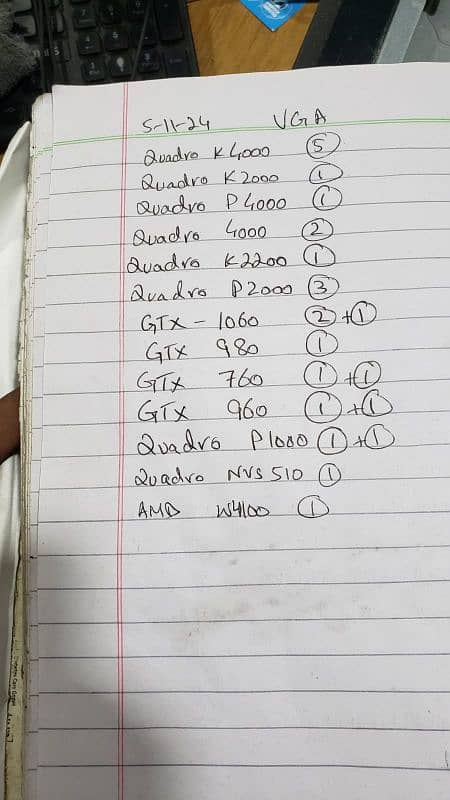 5-11-24 VGA
Quadro K4000 ⑤
Quadro K2000 ①
Quadro P4000 ①
Quadro 4000 ②
Quadro K2200 ①
Quadro P2000 ③
GTX - 1060 ② + ①
GTX 980 ①
GTX 760 ① + ①
GTX 960 ① + ①
Quadro P1000 ① + ①
Quadro NVS 510 ①
AMD W4100 ①